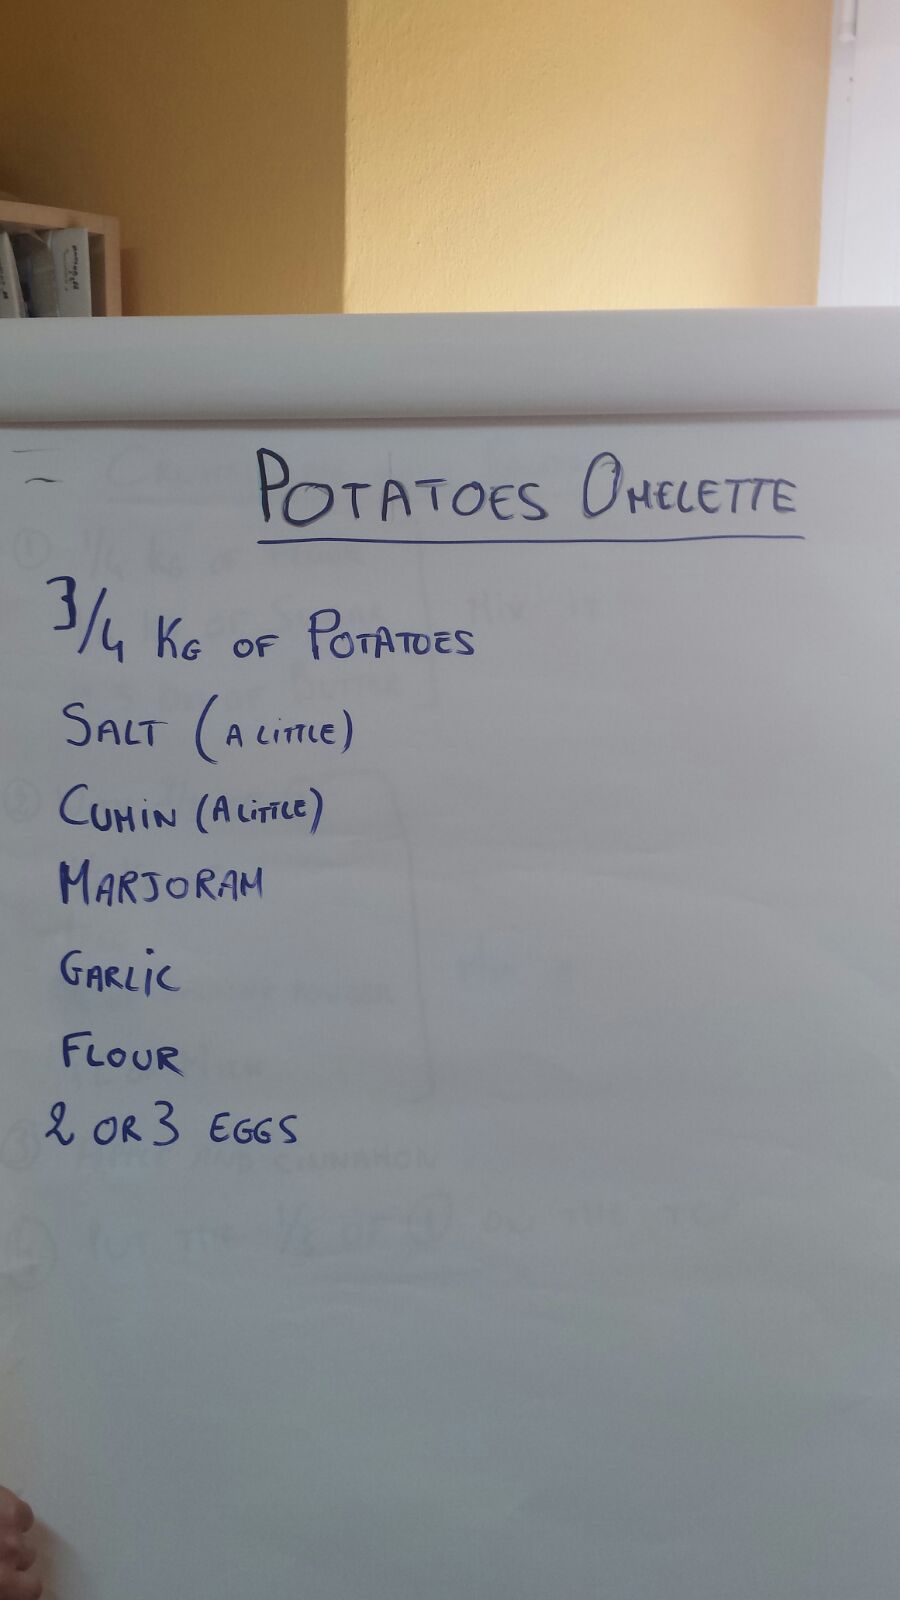 POTATOES OMELETTE
3/4 KG OF POTATOES
SALT (A LITTLE)
CUMIN (A LITTLE)
MARJORAM
GARLIC
FLOUR
2 OR 3 EGGS